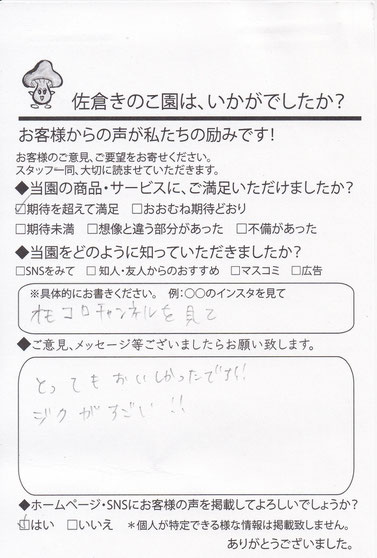 佐倉きのこ園は、いかがでしたか？
お客様からの声が私たちの励みです！
お客様のご意見、ご要望をお寄せください。
スタッフ一同、大切に読ませていただきます。
◆当園の商品・サービスに、ご満足いただけましたか？
☑期待を超えて満足 □おおむね期待どおり
□期待未満 □想像と違う部分があった □不備があった
◆当園をどのように知っていただきましたか？
□SNSをみて □知人・友人からのおすすめ □マスコミ □広告
※具体的にお書きください。 例：○○のインスタを見て
オモコロチャンネルを見て
◆ご意見、メッセージ等ございましたらお願い致します。
とってもおいしかったです!!
ジクがすごい!!
◆ホームページ・SNSにお客様の声を掲載してよろしいでしょうか？
☑はい □いいえ ＊個人が特定できる様な情報は掲載致しません。
ありがとうございました。